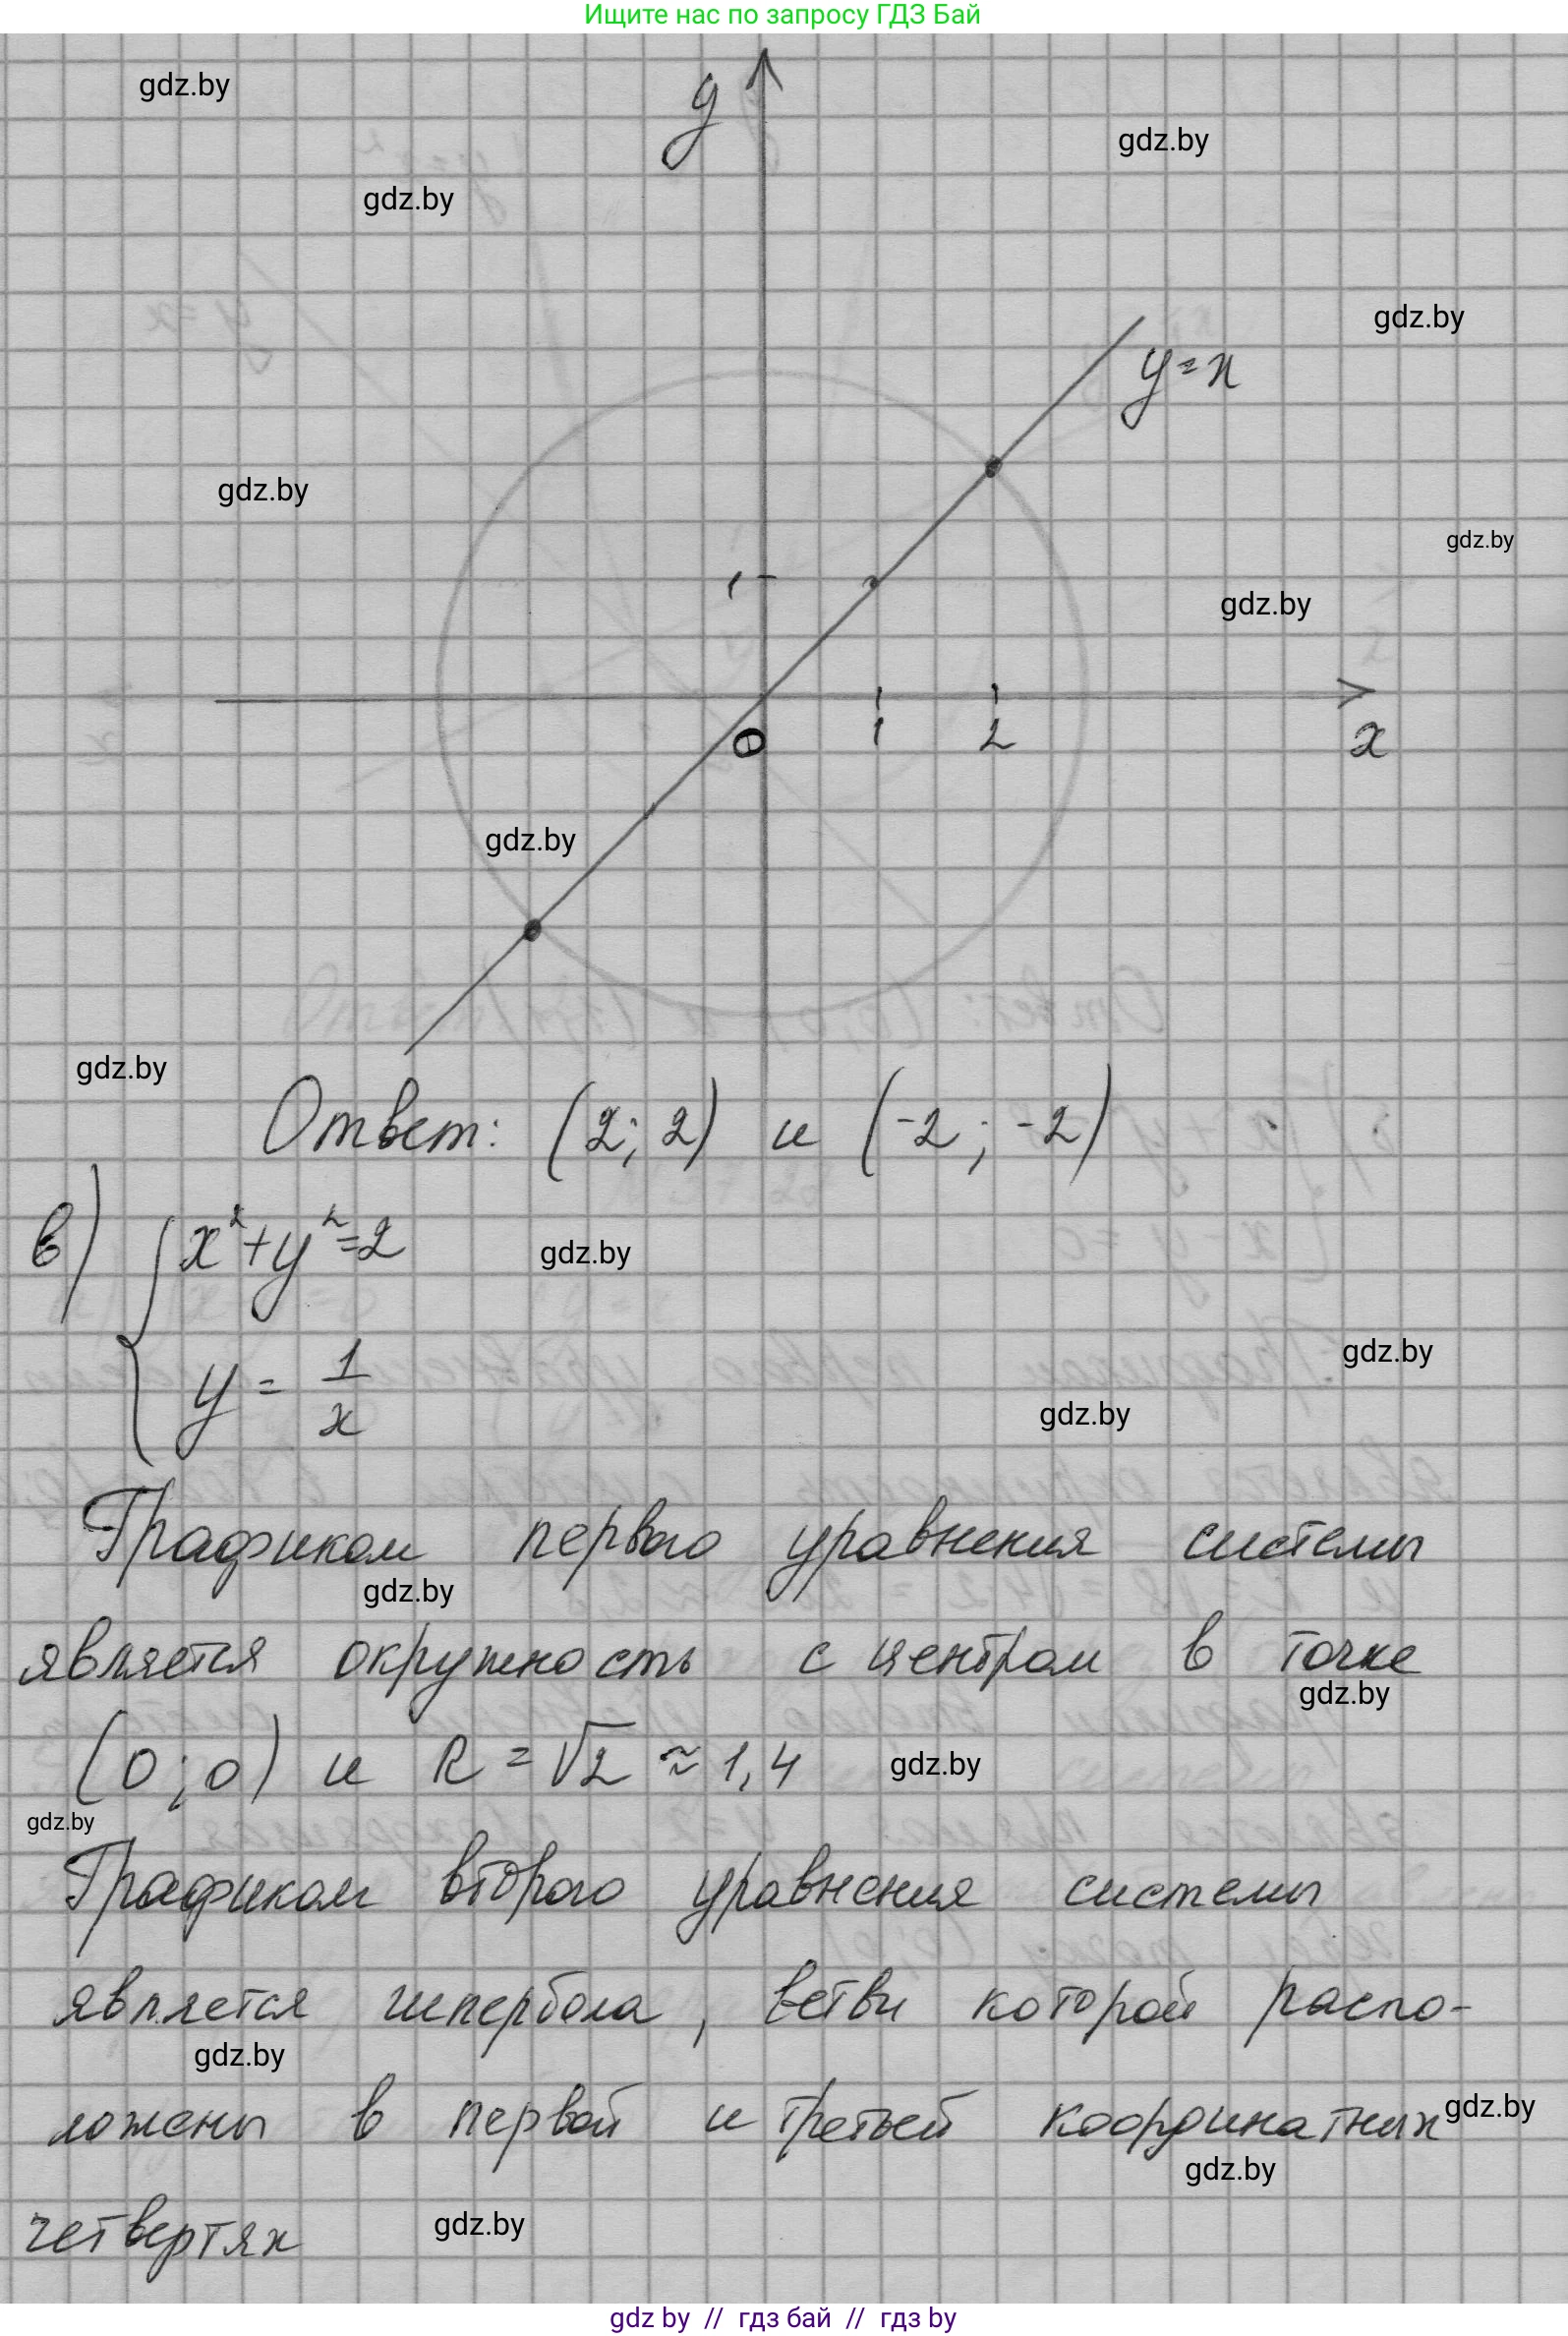 Ищите нас по запросу ГДЗ Бай
gdz.by
y
gdz.by
gdz.by
gdz.by
y=x
gdz.by
gdz.by
1
gdz.by
0
1
2
x
gdz.by
gdz.by
Ответ: (2; 2) и (-2; -2)
в) { x²+y²=2
gdz.by
y = 1/x
gdz.by
gdz.by
Графиком первого уравнения системы
gdz.by
является окружность с центром в точке
gdz.by
(0;0) и R = √2 ≈ 1,4
gdz.by
gdz.by
Графиком второго уравнения системы
является гипербола, ветви которой распо-
gdz.by
ложены в первой и третьей координатных
gdz.by
gdz.by
четвертях
gdz.by
gdz by // гдз бай // гдз by